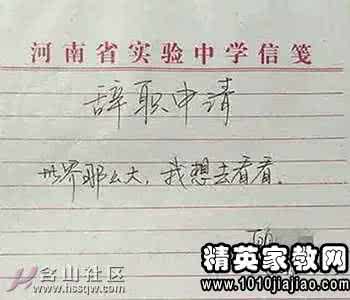 河南省实验中学信笺
辞职申请
世界那么大，我想去看看。
含山社区
www.hssqw.com
精英家教网
www.1010jiajiao.com